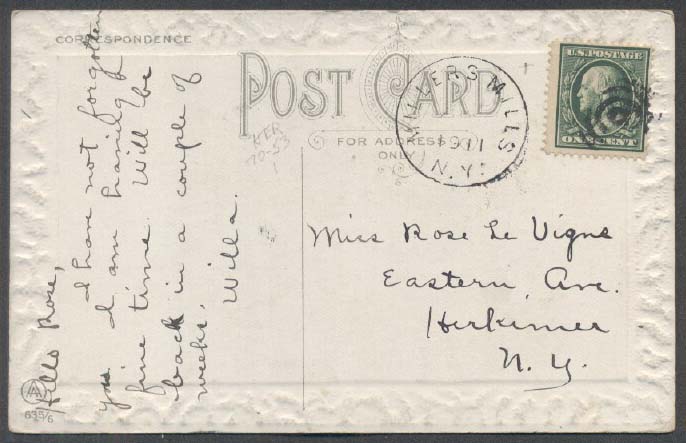 CORRESPONDENCE
POST CARD
FOR ADDRESS
ONLY
MILLERS MILLS
1911
N.Y.
U.S. POSTAGE
ONE CENT
Hello Rose,
I have not forgotten
you. I am having a
fine time. Will be
back in a couple of
weeks.
Willa.
Miss Rose Le Vigne
Eastern Ave.
Herkimer
N. Y.
AA
635/6